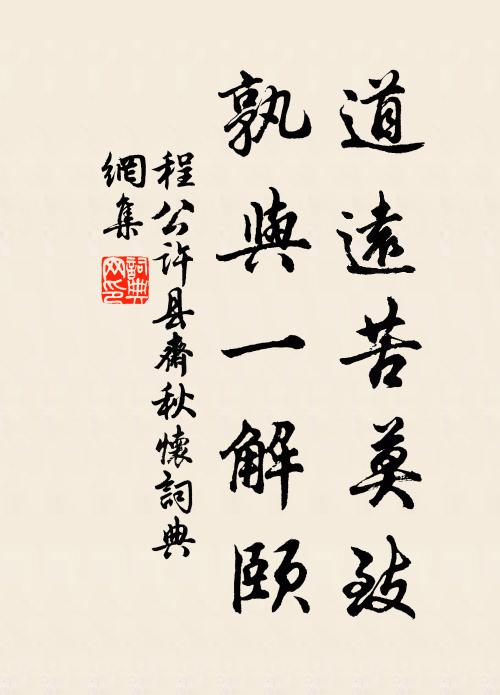 道遠苦莫致
孰與一解頤
程公许县齋秋懷詞典
網集
詞典
网印